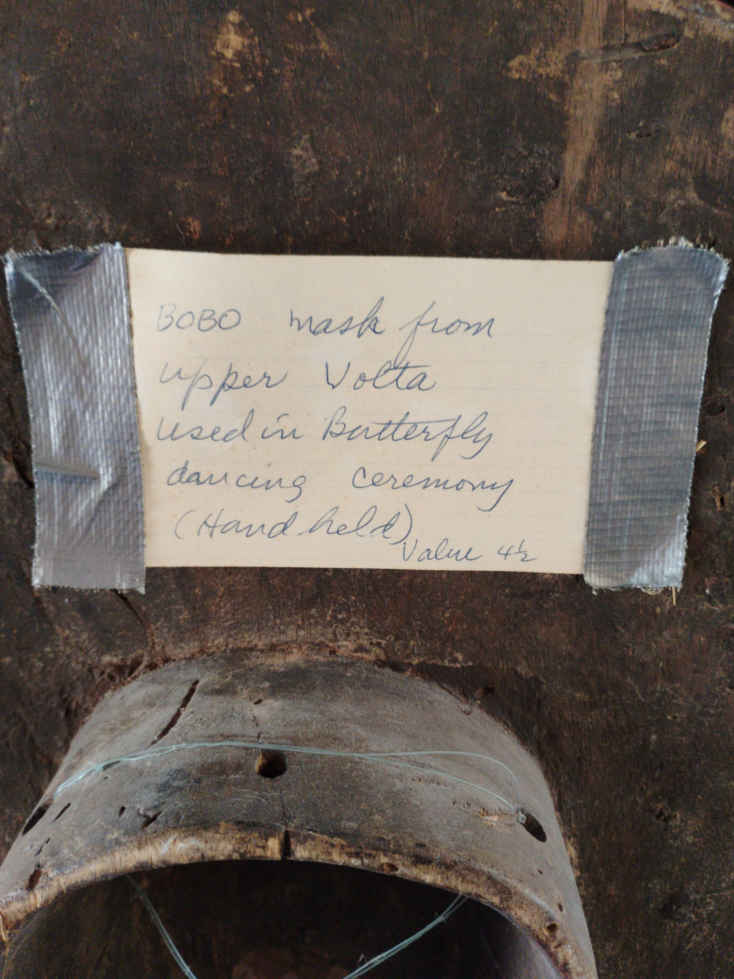 BOBO mask from
upper Volta
used in Butterfly
dancing ceremony
(Hand held)
Value 4½